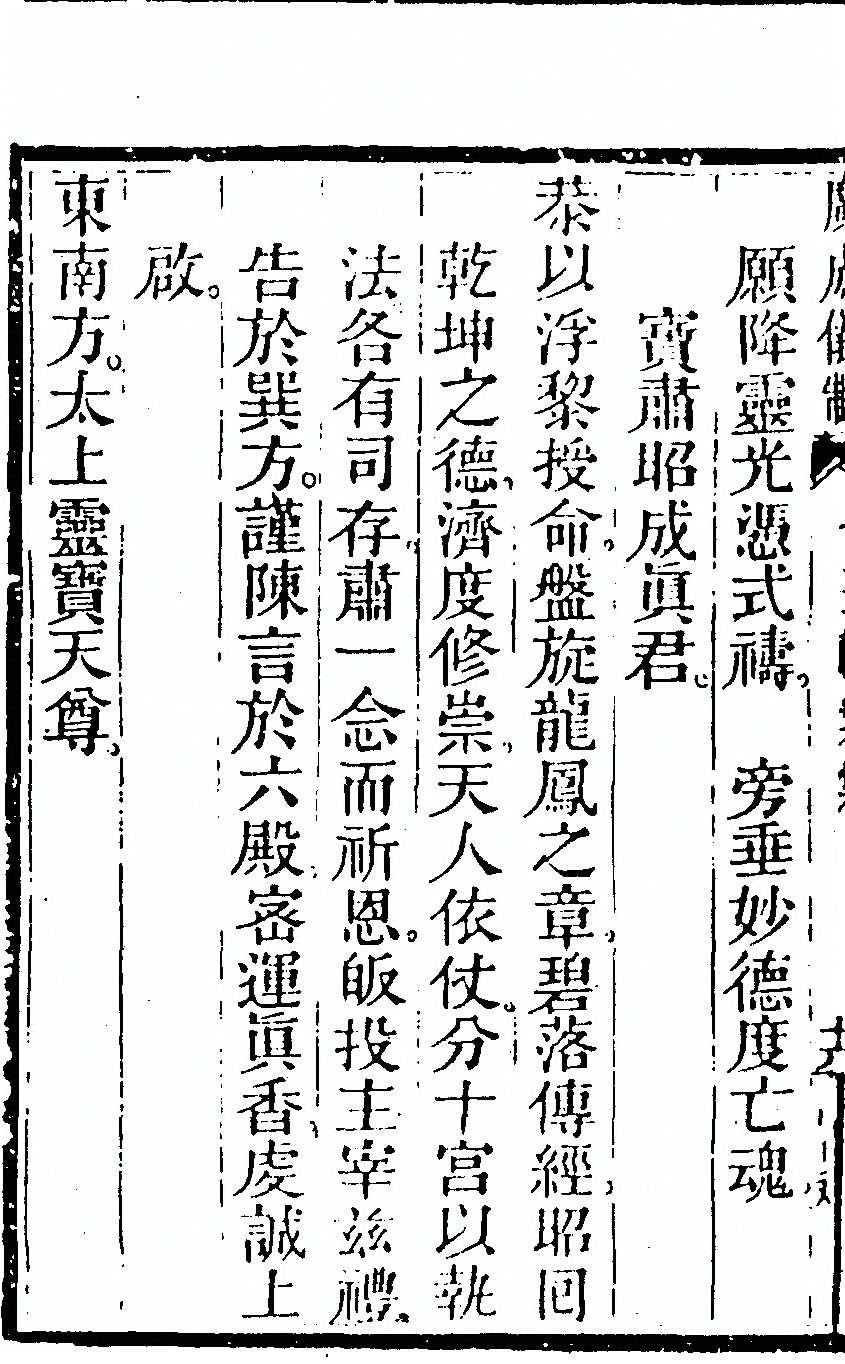 廣成儀制
願降靈光憑式禱。　旁垂妙德度亡魂
寶肅昭成眞君。
恭以浮黎授命。盤旋龍鳳之章。碧落傳經。昭囘
乾坤之德。濟度修崇。天人依仗。分十宮以執
法各有司存。肅一念而祈恩。皈投主宰茲禮。
告於巽方。謹陳言於六殿。密運眞香。虔誠上
啟。
東南方。太上靈寶天尊。